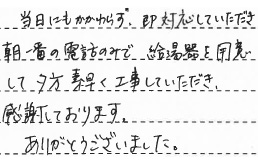 当日にもかかわらず、即対応していただき
朝一番の電話のみで、給湯器を用意
して夕方素早く工事していただき、
感謝しております。
ありがとうございました。